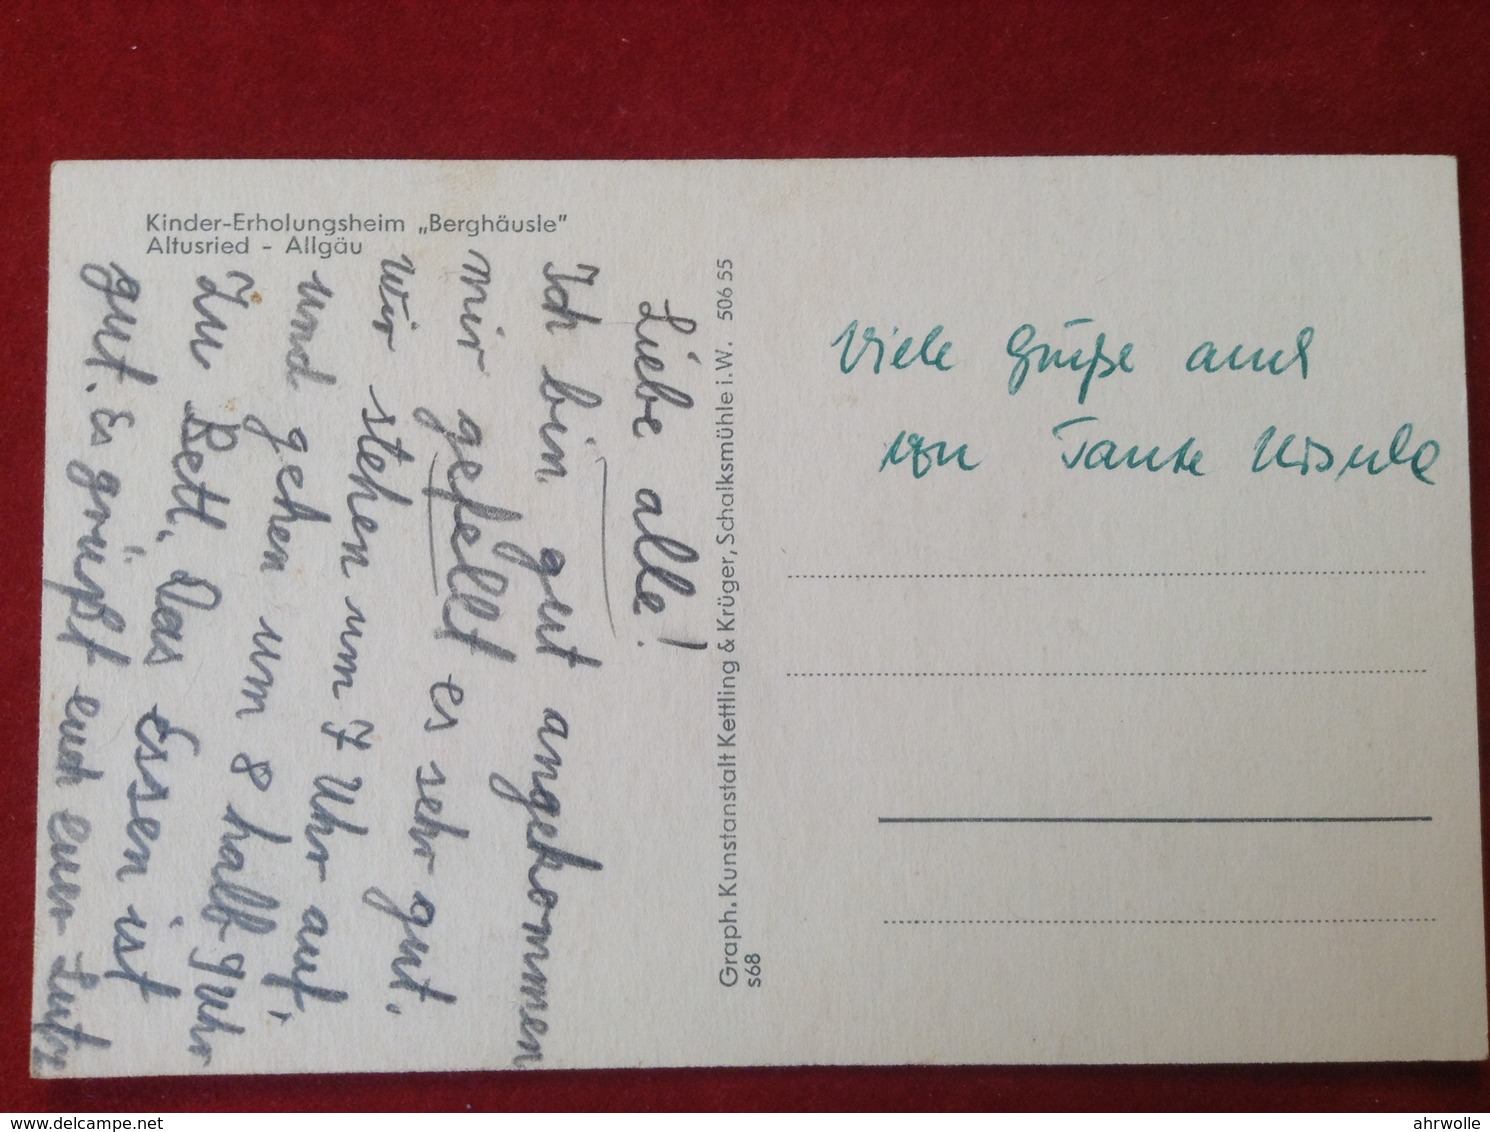 Kinder-Erholungsheim „Berghäusle”
Altusried - Allgäu
Liebe alle!
Ich bin gut angekommen
mir gefellt es sehr gut.
wir stehen um 7 Uhr auf,
und gehen um 8 halb 9 Uhr
Zu Bett. Das Essen ist
gut. Es grüßt euch euer Lutz
Graph. Kunstanstalt Kettling & Krüger, Schalksmühle i. W. 506 55
s68
Viele Grüße auch
von Tante Ursula
ahrwolle